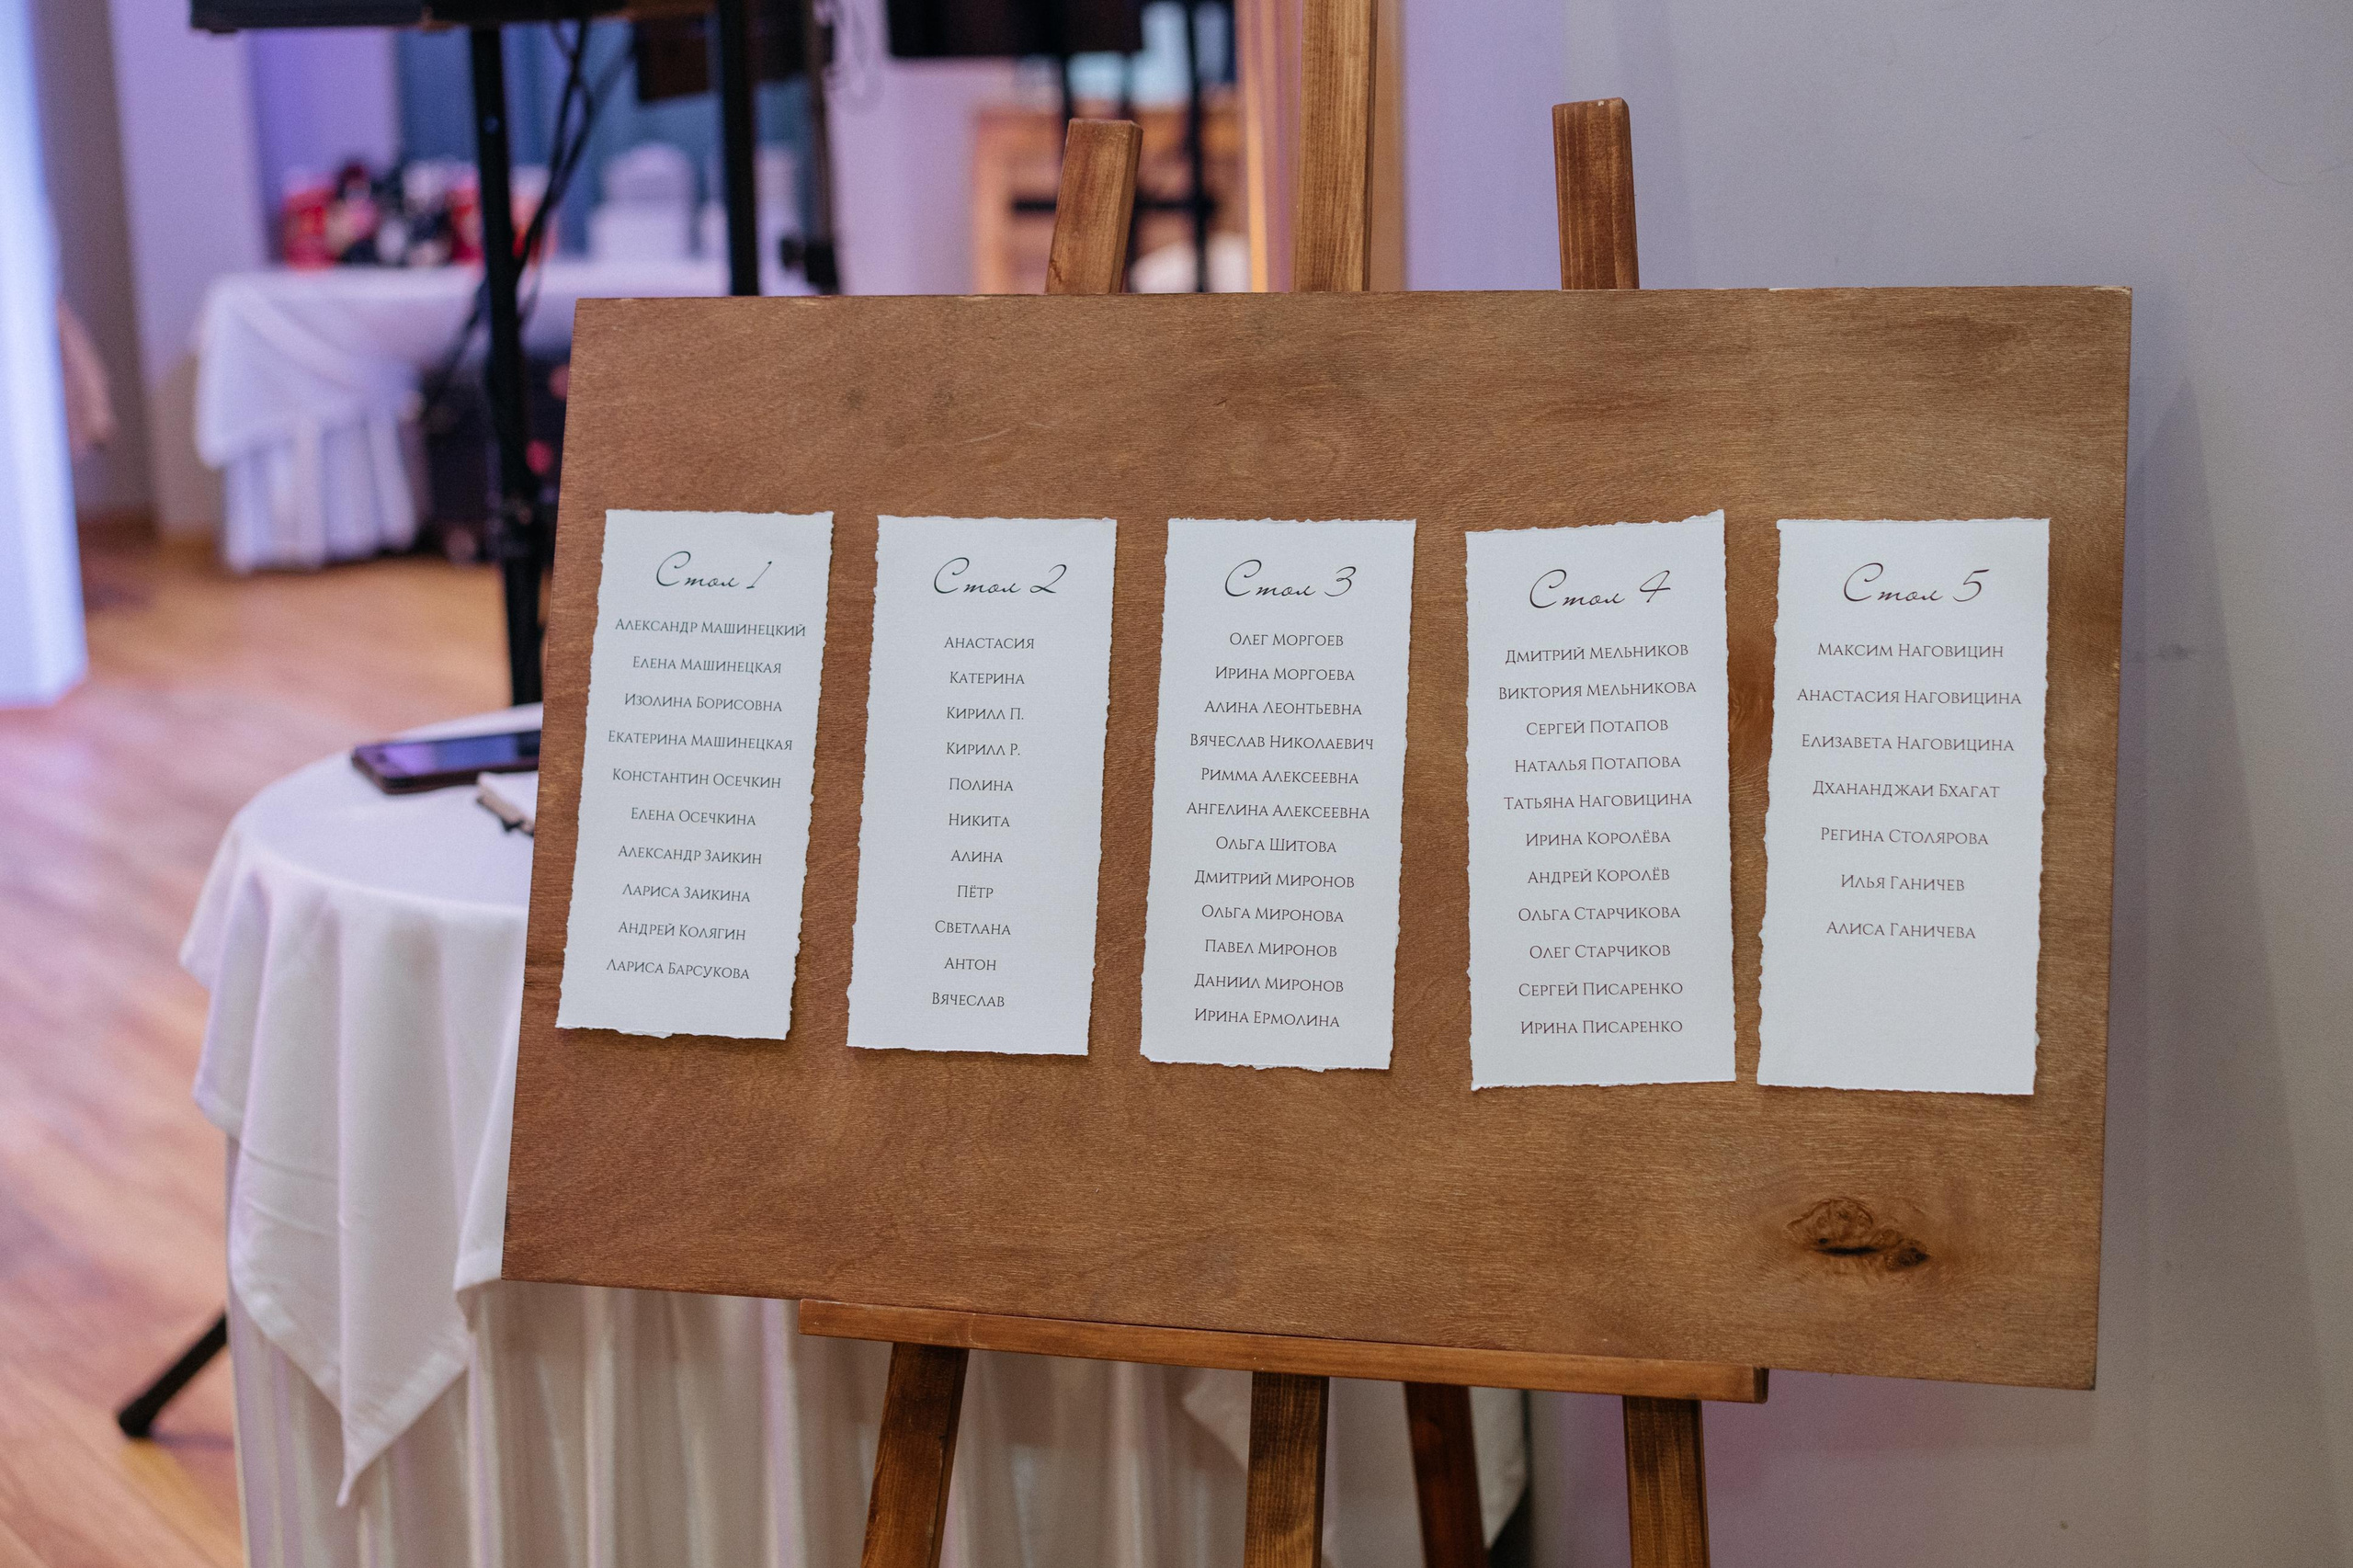 Стол 1
Александр Машинецкий
Елена Машинецкая
Изолина Борисовна
Екатерина Машинецкая
Константин Осечкин
Елена Осечкина
Александр Заикин
Лариса Заикина
Андрей Колягин
Лариса Барсукова
Стол 2
Анастасия
Катерина
Кирилл П.
Кирилл Р.
Полина
Никита
Алина
Пётр
Светлана
Антон
Вячеслав
Стол 3
Олег Моргоев
Ирина Моргоева
Алина Леонтьевна
Вячеслав Николаевич
Римма Алексеевна
Ангелина Алексеевна
Ольга Шитова
Дмитрий Миронов
Ольга Миронова
Павел Миронов
Даниил Миронов
Ирина Ермолина
Стол 4
Дмитрий Мельников
Виктория Мельникова
Сергей Потапов
Наталья Потапова
Татьяна Наговицина
Ирина Королёва
Андрей Королёв
Ольга Старчикова
Олег Старчиков
Сергей Писаренко
Ирина Писаренко
Стол 5
Максим Наговицин
Анастасия Наговицина
Елизавета Наговицина
Дхананджаи Бхагат
Регина Столярова
Илья Ганичев
Алиса Ганичева